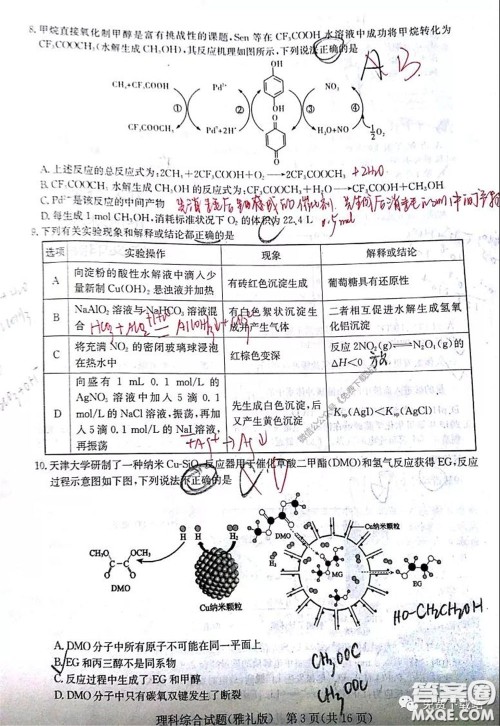 8. 甲烷直接氧化制甲醇是富有挑战性的课题,Sen 等在 CF₃COOH 水溶液中成功将甲烷转化为
CF₃COOCH₃(水解生成 CH₃OH),其反应机理如图所示,下列说法正确的是
A.B.
CH₄+CF₃COOH
Pd²⁺
OH
OH
NO₂
①
②
③
④
CF₃COOCH₃
Pd⁰+2H⁺
O
O
H₂O+NO
½O₂
A. 上述反应的总反应式为:2CH₄+2CF₃COOH+O₂→2CF₃COOCH₃ +2H₂O
B. CF₃COOCH₃ 水解生成 CH₃OH 的反应式为:CF₃COOCH₃+H₂O→CF₃COOH+CH₃OH
C. Pd²⁺是该反应的中间产物
D. 每生成 1 mol CH₃OH,消耗标准状况下 O₂ 的体积为 22.4 L 0.5mol
9. 下列有关实验现象和解释或结论都正确的是
选项 实验操作 现象 解释或结论
A 向淀粉的酸性水解液中滴入少量新制 Cu(OH)₂ 悬浊液并加热 有砖红色沉淀生成 葡萄糖具有还原性
B NaAlO₂ 溶液与 NaHCO₃ 溶液混合 有白色絮状沉淀生成并产生气体 二者相互促进水解生成氢氧化铝沉淀
C 将充满 NO₂ 的密闭玻璃球浸泡在热水中 红棕色变深 反应 2NO₂(g)⇌N₂O₄(g)的 ΔH<0
D 向盛有 1 mL 0.1 mol/L 的 AgNO₃ 溶液中加入 5 滴 0.1 mol/L 的 NaCl 溶液,振荡,再加入 5 滴 0.1 mol/L 的 NaI 溶液,再振荡 先生成白色沉淀,后又产生黄色沉淀 Ksp(AgI)<Ksp(AgCl)
10. 天津大学研制了一种纳米 Cu-SiO₂ 反应器用于催化草酸二甲酯(DMO)和氢气反应获得 EG,反应
过程示意图如下图,下列说法不正确的是
CH₃O
OCH₃
O
O
DMO
H
H
Cu纳米颗粒
DMO
MG
Cu纳米颗粒
EG
HO-CH₂CH₂OH
A. DMO 分子中所有原子不可能在同一平面上
B. EG 和丙三醇不是同系物
C. 反应过程中生成了 EG 和甲醇
D. DMO 分子中只有碳氧双键发生了断裂
CH₃OOC
CH₃OOC
理科综合试题(雅礼版) 第 3 页(共 16 页)
答案圈
MXQE.COM